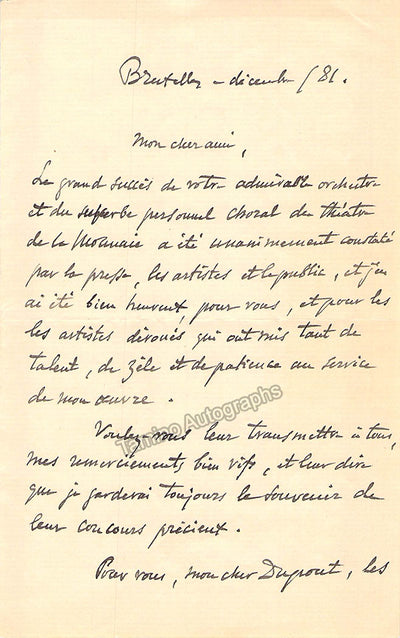 Bruxelles - décembre / 81.
Mon cher ami,
Le grand succès de votre admirable orchestre
et du superbe personnel choral du théâtre
de la Monnaie a été unanimement constaté
par la presse, les artistes et le public, et j'en
ai été bien heureux pour vous, et pour les
les artistes dévoués qui ont mis tant de
talent, de zèle et de patience au service
de mon œuvre.
Voulez-vous leur transmettre à tous,
mes remerciements bien vifs, et leur dire
que je garderai toujours le souvenir de
leur concours précieux.
Pour vous, mon cher Dupont, les
Tamino Autographs